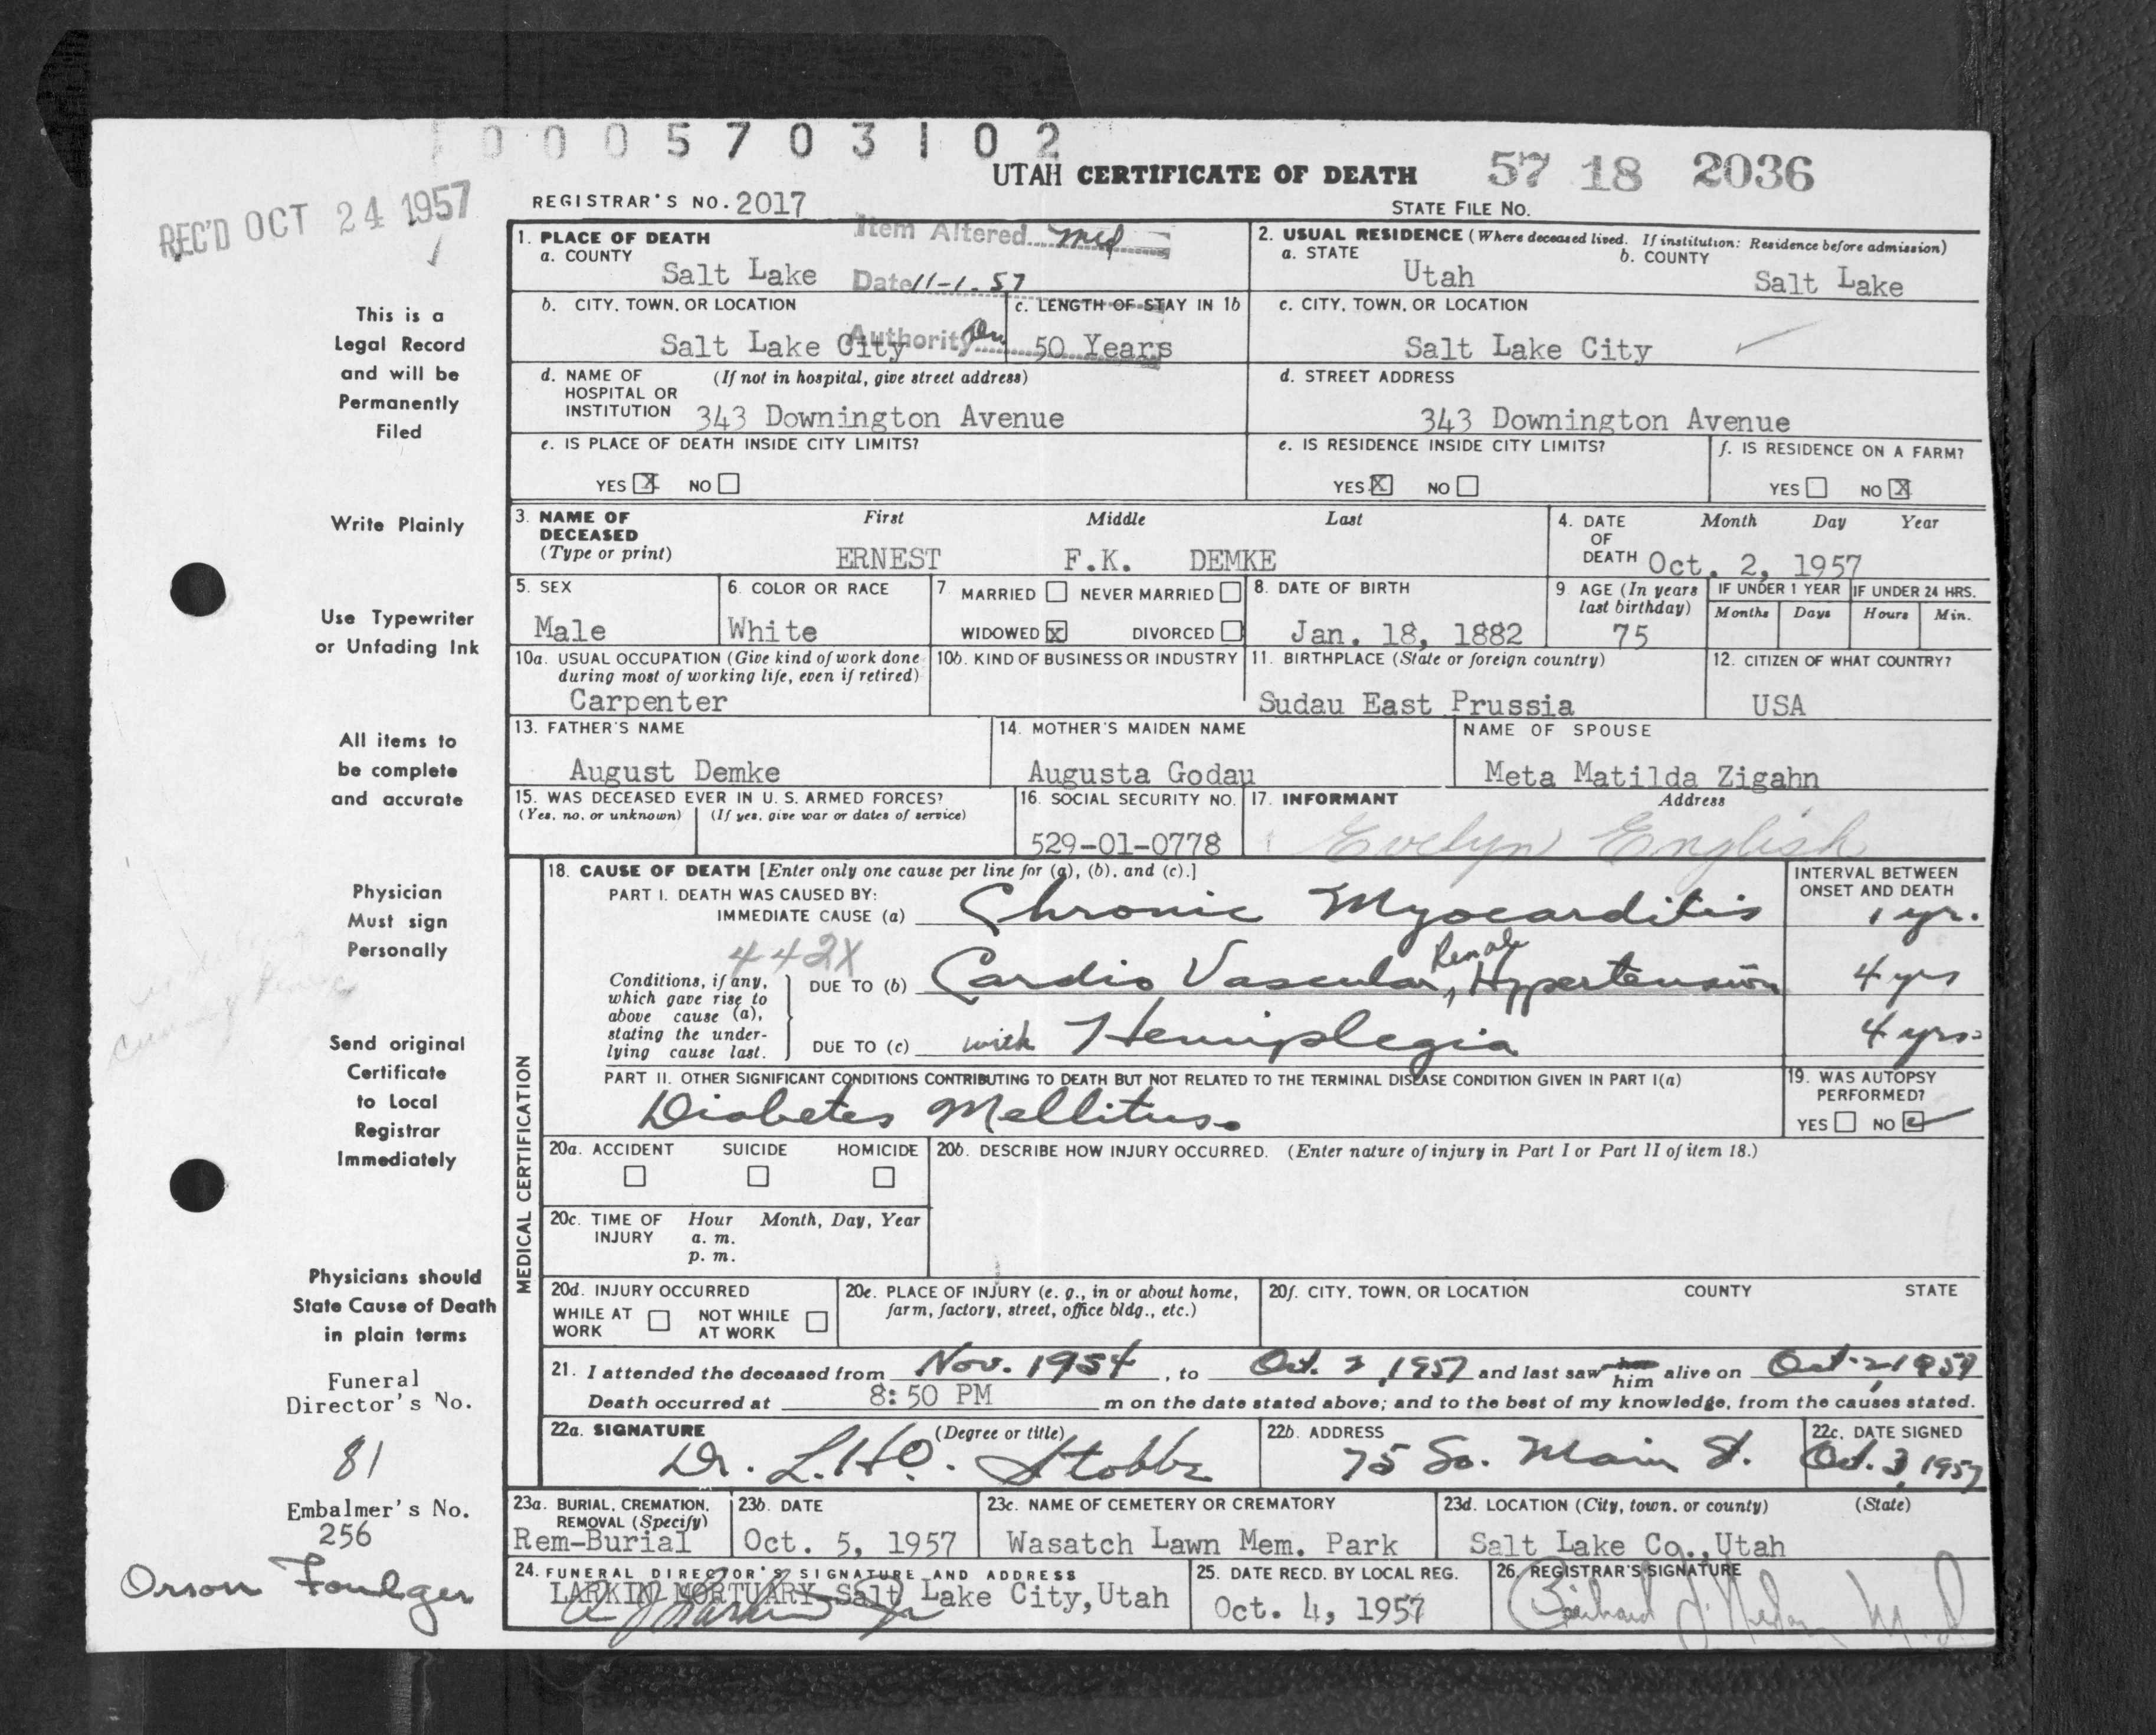 0005703102
UTAH CERTIFICATE OF DEATH 57 18 2036
REC'D OCT 24 1957
REGISTRAR'S NO. 2017
STATE FILE NO.
Item Altered
Date 11-1-57
Authority
1. PLACE OF DEATH
a. COUNTY
Salt Lake
2. USUAL RESIDENCE (Where deceased lived. If institution: Residence before admission)
a. STATE b. COUNTY
Utah Salt Lake
b. CITY, TOWN, OR LOCATION
Salt Lake City
c. LENGTH OF STAY IN 1b
50 Years
c. CITY, TOWN, OR LOCATION
Salt Lake City
d. NAME OF (If not in hospital, give street address)
HOSPITAL OR
INSTITUTION 343 Downington Avenue
d. STREET ADDRESS
343 Downington Avenue
e. IS PLACE OF DEATH INSIDE CITY LIMITS?
YES X NO
e. IS RESIDENCE INSIDE CITY LIMITS?
YES X NO
f. IS RESIDENCE ON A FARM?
YES NO X
3. NAME OF DECEASED (Type or print) First Middle Last
ERNEST F.K. DEMKE
4. DATE OF DEATH Month Day Year
Oct. 2, 1957
5. SEX
Male
6. COLOR OR RACE
White
7. MARRIED NEVER MARRIED
WIDOWED X DIVORCED
8. DATE OF BIRTH
Jan. 18, 1882
9. AGE (In years last birthday)
75
IF UNDER 1 YEAR IF UNDER 24 HRS.
Months Days Hours Min.
10a. USUAL OCCUPATION (Give kind of work done
during most of working life, even if retired)
Carpenter
10b. KIND OF BUSINESS OR INDUSTRY
11. BIRTHPLACE (State or foreign country)
Sudau East Prussia
12. CITIZEN OF WHAT COUNTRY?
USA
13. FATHER'S NAME
August Demke
14. MOTHER'S MAIDEN NAME
Augusta Godau
NAME OF SPOUSE
Meta Matilda Zigahn
15. WAS DECEASED EVER IN U. S. ARMED FORCES?
(Yes, no, or unknown) (If yes, give war or dates of service)
16. SOCIAL SECURITY NO.
529-01-0778
17. INFORMANT Address
Evelyn English
MEDICAL CERTIFICATION
18. CAUSE OF DEATH [Enter only one cause per line for (a), (b), and (c).]
INTERVAL BETWEEN
ONSET AND DEATH
PART I. DEATH WAS CAUSED BY:
IMMEDIATE CAUSE (a) Chronic Myocarditis 1 yr.
442X
Conditions, if any,
which gave rise to
above cause (a),
stating the under-
lying cause last.
DUE TO (b) Cardio Vascular, Renal Hypertension 4 yrs
DUE TO (c) with Hemiplegia 4 yrs
PART II. OTHER SIGNIFICANT CONDITIONS CONTRIBUTING TO DEATH BUT NOT RELATED TO THE TERMINAL DISEASE CONDITION GIVEN IN PART I(a)
Diabetes Mellitus.
19. WAS AUTOPSY
PERFORMED?
YES NO
20a. ACCIDENT SUICIDE HOMICIDE
20b. DESCRIBE HOW INJURY OCCURRED. (Enter nature of injury in Part I or Part II of item 18.)
20c. TIME OF INJURY Hour Month, Day, Year
a. m.
p. m.
20d. INJURY OCCURRED
WHILE AT WORK NOT WHILE AT WORK
20e. PLACE OF INJURY (e. g., in or about home,
farm, factory, street, office bldg., etc.)
20f. CITY, TOWN, OR LOCATION COUNTY STATE
21. I attended the deceased from Nov. 1954, to Oct. 2, 1957 and last saw her him alive on Oct. 2, 1957
Death occurred at 8:50 PM m on the date stated above; and to the best of my knowledge, from the causes stated.
22a. SIGNATURE (Degree or title)
Dr. L.H.O. Stobbe
22b. ADDRESS
75 So. Main St.
22c. DATE SIGNED
Oct. 3, 1957
23a. BURIAL, CREMATION,
REMOVAL (Specify)
Rem-Burial
23b. DATE
Oct. 5, 1957
23c. NAME OF CEMETERY OR CREMATORY
Wasatch Lawn Mem. Park
23d. LOCATION (City, town, or county) (State)
Salt Lake Co., Utah
24. FUNERAL DIRECTOR'S SIGNATURE AND ADDRESS
LARKIN MORTUARY Salt Lake City, Utah
25. DATE RECD. BY LOCAL REG.
Oct. 4, 1957
26. REGISTRAR'S SIGNATURE
This is a
Legal Record
and will be
Permanently
Filed
Write Plainly
Use Typewriter
or Unfading Ink
All items to
be complete
and accurate
Physician
Must sign
Personally
Send original
Certificate
to Local
Registrar
Immediately
Physicians should
State Cause of Death
in plain terms
Funeral
Director's No.
81
Embalmer's No.
256
Orson Foulger